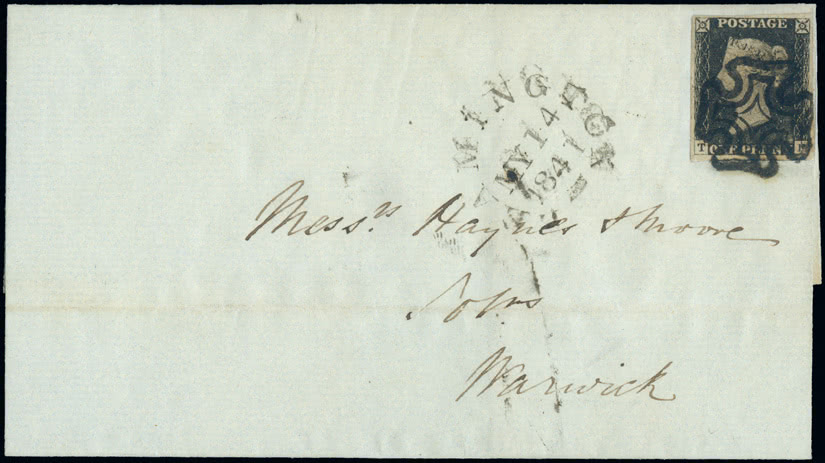 POSTAGE
T K
ONE PENNY
MINGTON
MY 14
1841
Mess.rs Haynes & Moore
Solrs
Warwick